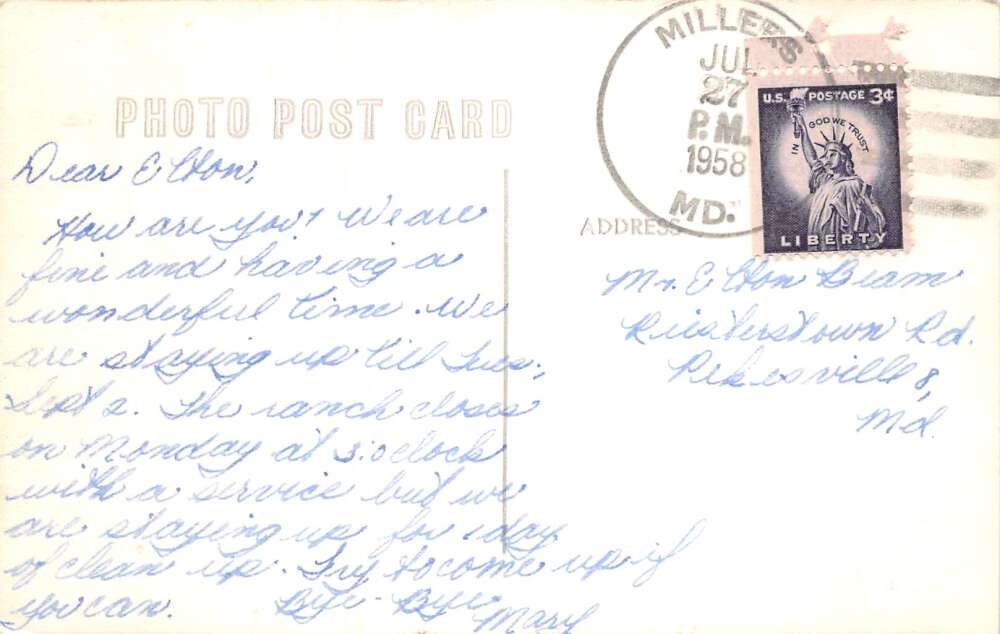 PHOTO POST CARD
Dear Elton,
How are you? We are
fine and having a
wonderful time. We
are staying up till Tues.,
Sept 2. The ranch closes
on Monday at 3:oclock
with a service but we
are staying up for 1 day
of clean up. Try to come up if
you can. Bye-Bye
Mary
MILLERS
JUL
27
P.M.
1958
MD.
U.S. POSTAGE 3¢
IN GOD WE TRUST
LIBERTY
ADDRESS
Mr. Elton Beam
Riesterstown Rd.
Pikesville 8,
Md.